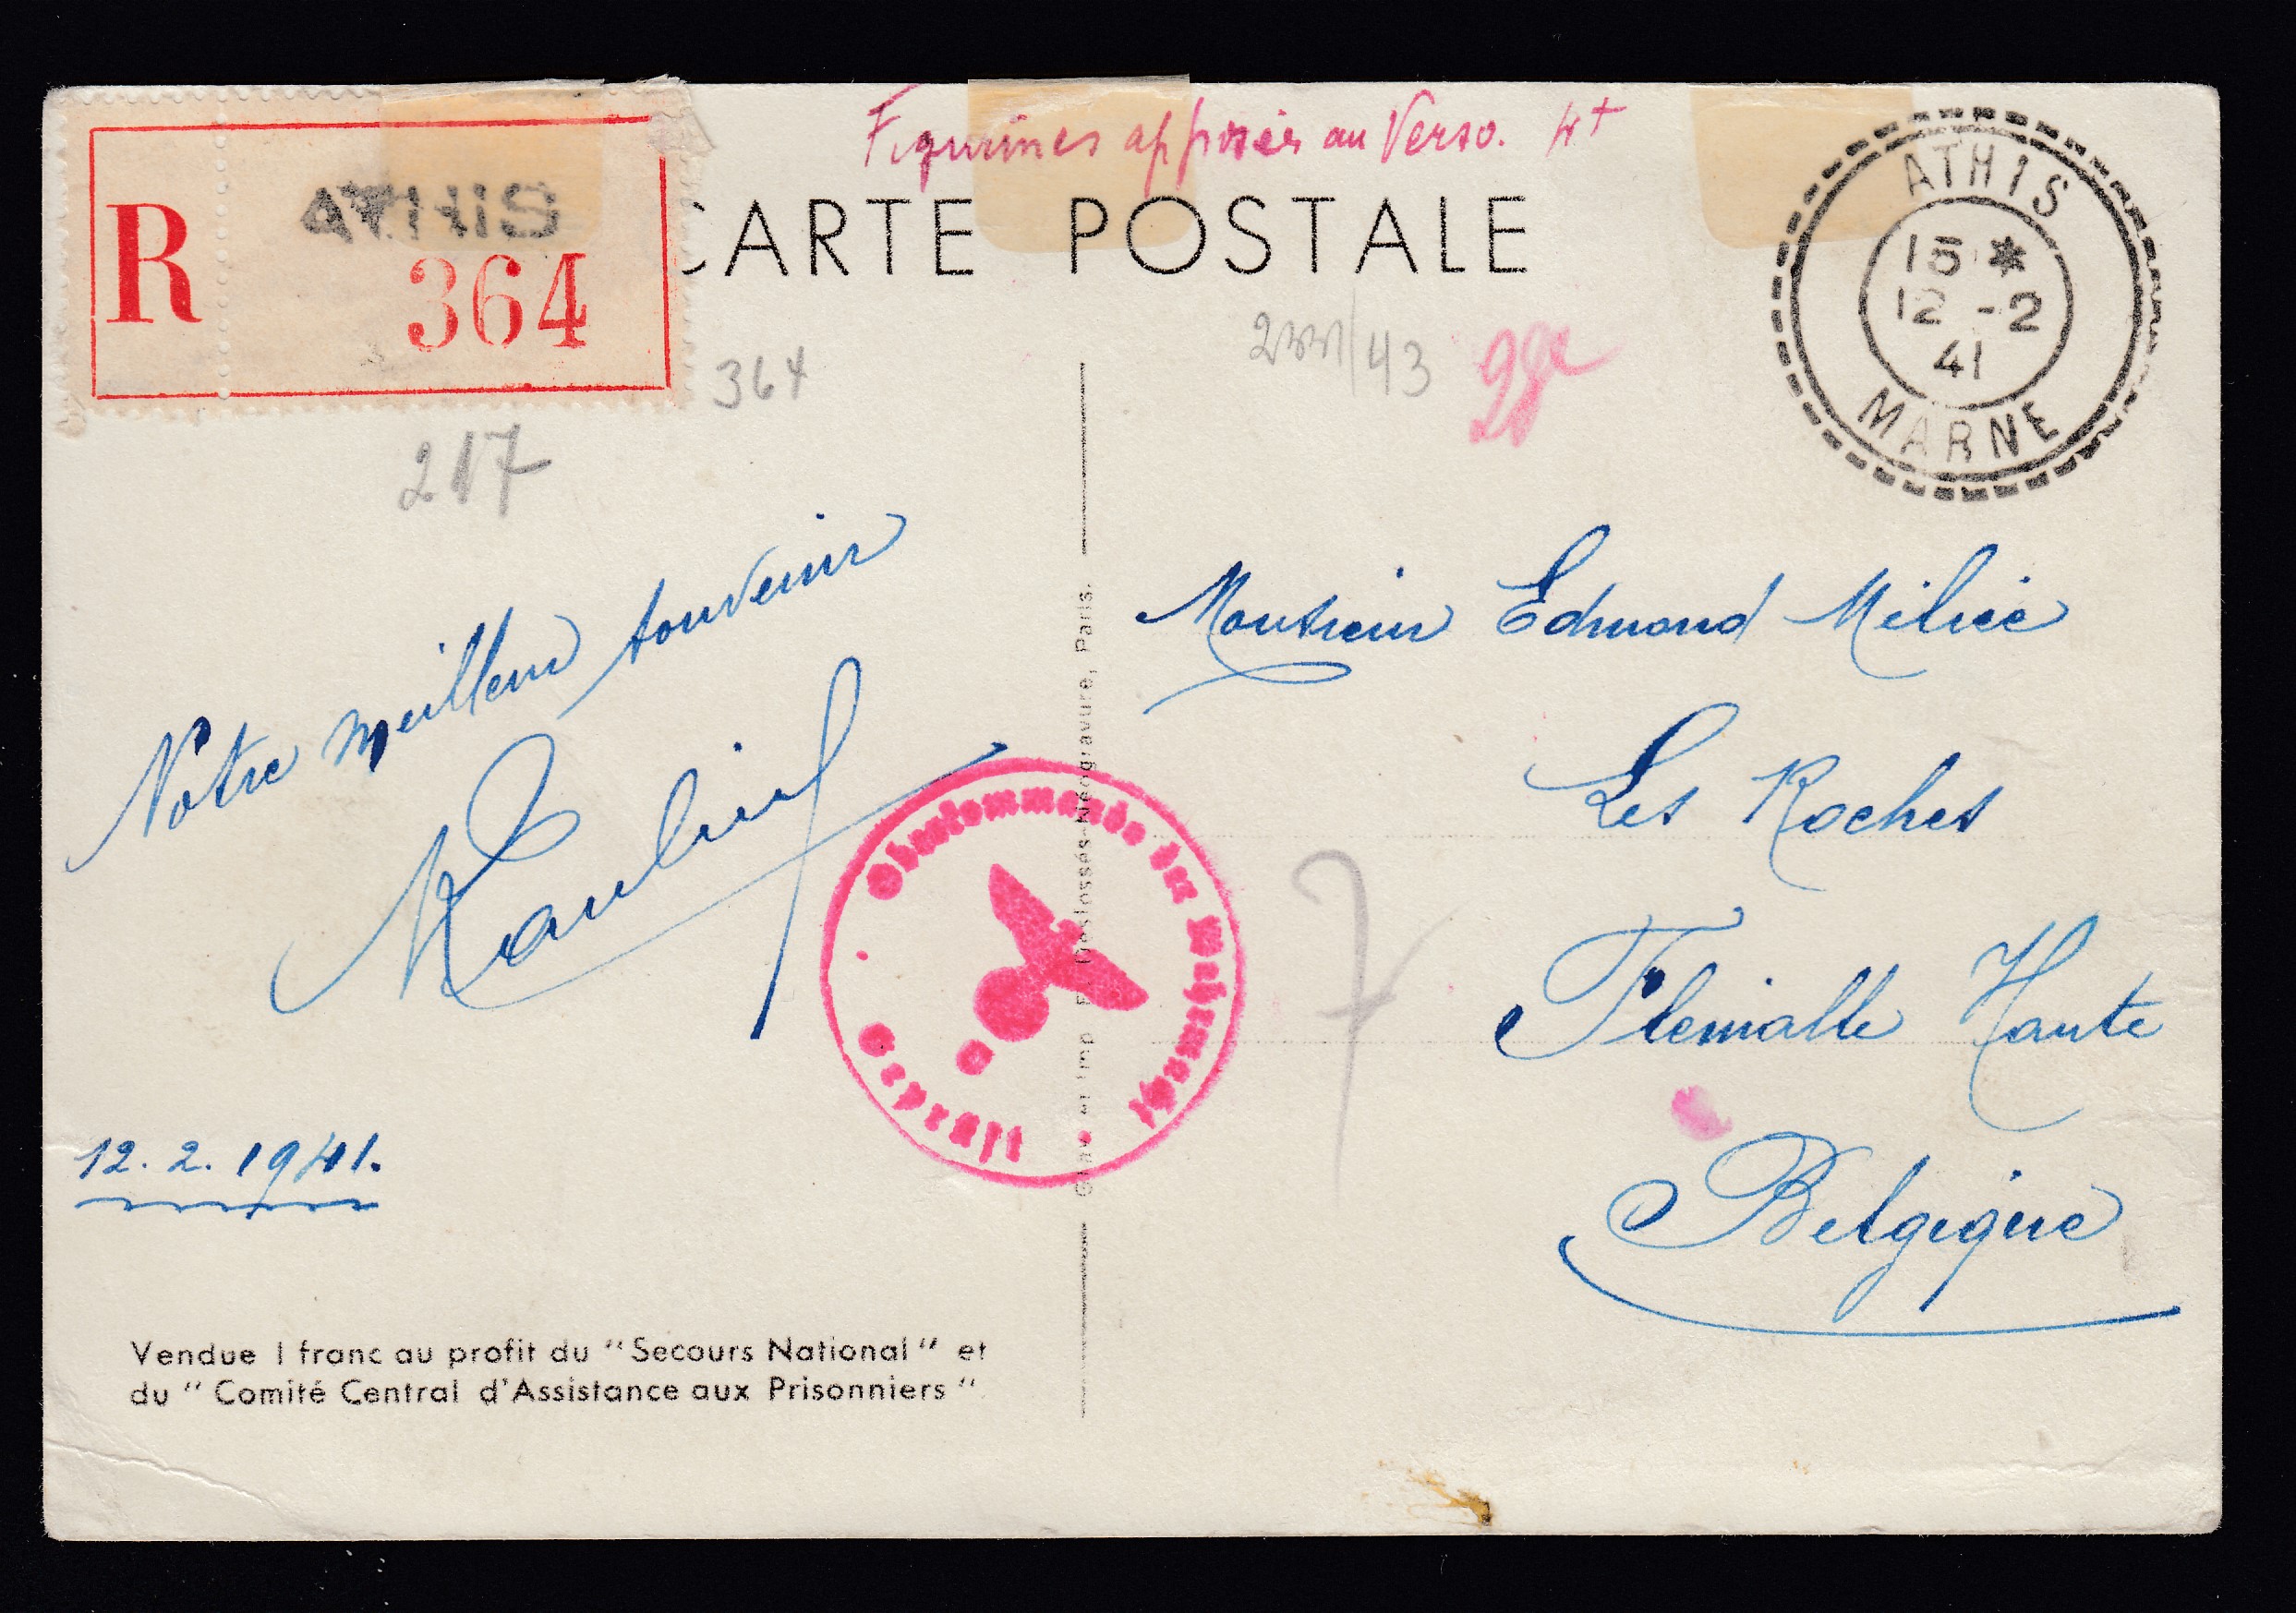 Figurines apposées au Verso. 4+
R
ATHIS
364
CARTE POSTALE
ATHIS
15 *
12 -2
41
MARNE
364
43
217
Notre meilleur souvenir
12.2.1941.
Monsieur Edmond
Les Roches
Flemalle Haute
Belgique
Oberkommando der Wehrmacht
Geprüft
Héliogravure, Paris.
Vendue 1 franc au profit du "Secours National" et
du "Comité Central d'Assistance aux Prisonniers"
7